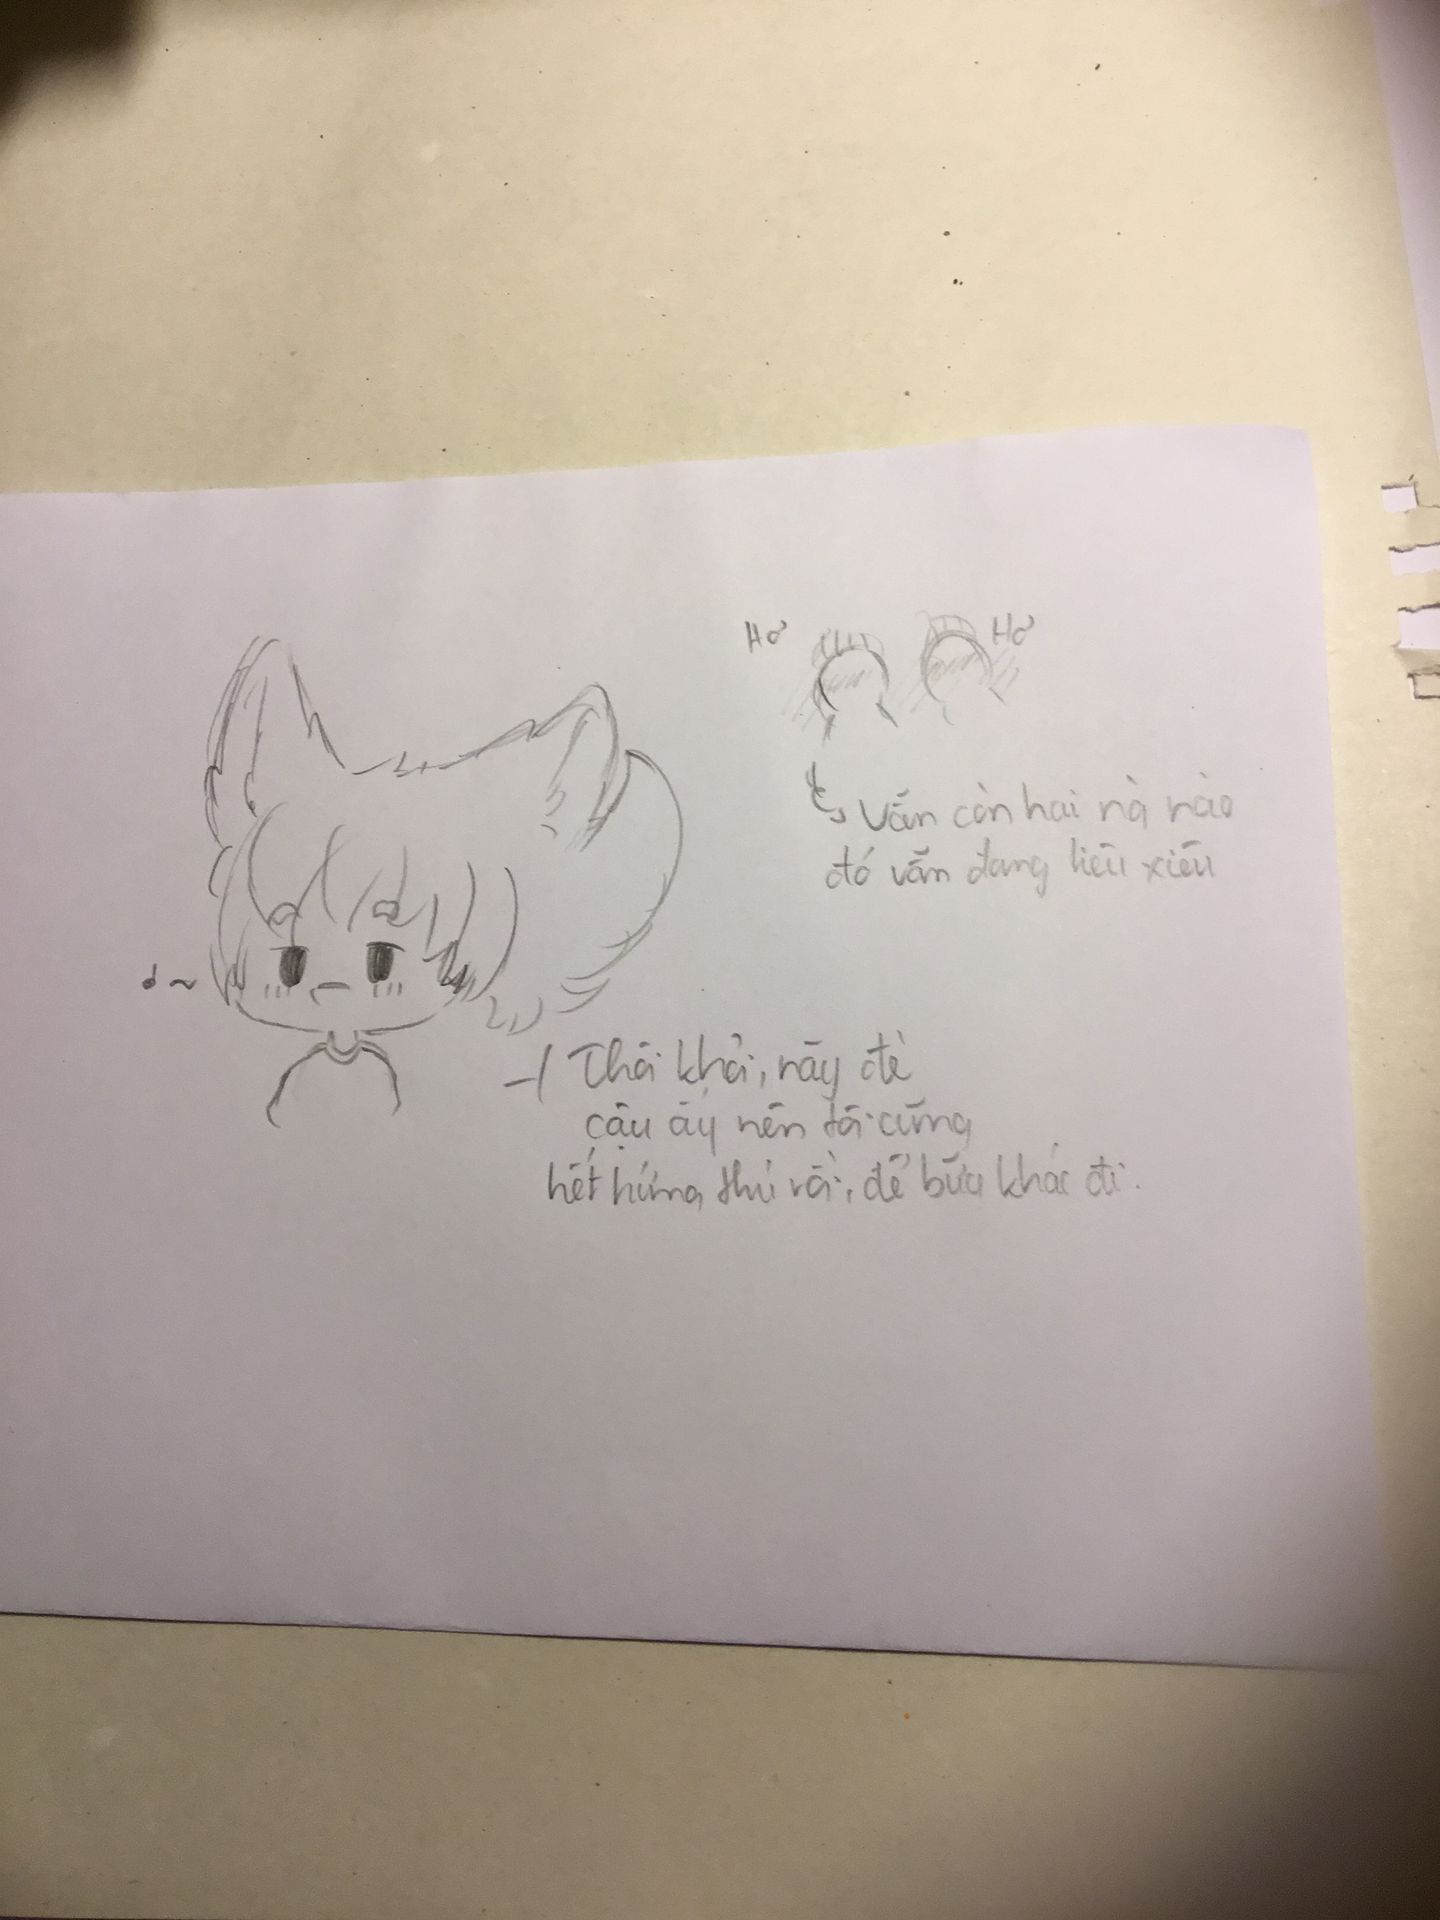 Hơ
Hơ
Vẫn còn hai nà nào
đó vẫn đang liêu xiêu
Thôi khỏi, nãy đè
cậu ấy nên tôi cũng
hết hứng thú rồi, để bữa khác đi.